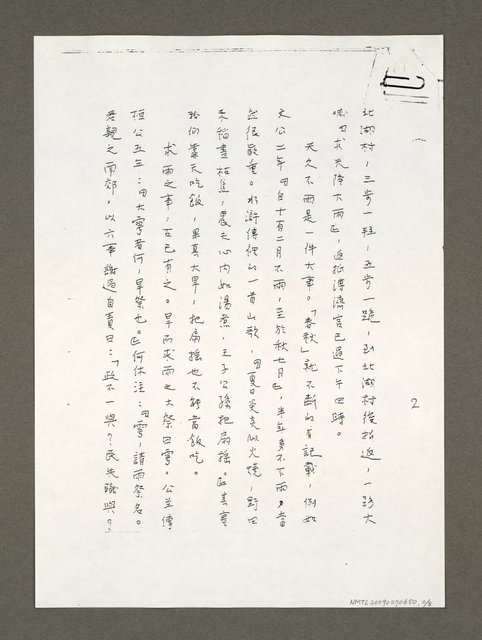 2
北湖村，三步一拜，五步一跪，到北湖村後折返，一路大
喊「求天降下雨」，返抵溥濟宮已過下午四時。
天久不雨是一件大事。「春秋」就不斷的有記載，例如
文公二年「自十有二月不雨，至於秋七月」，半年多不下雨，當
然很嚴重。水滸傳裡的一首山歌，「夏日炎炎似火燒，野田
禾稻盡枯焦，農夫心內如湯煮，王子公孫把扇搖。」其實
我們靠天吃飯，果真大旱，把扇搖也不能當飯吃。
求雨之事，古已有之。旱而求雨之大祭曰雩。公羊傳
桓公五年：「大雩者何，旱祭也。」何休注：「雩，請雨祭名。
君親之南郊，以六事謝過自責曰：「政不一與？民失職與？
NMTL20090270650